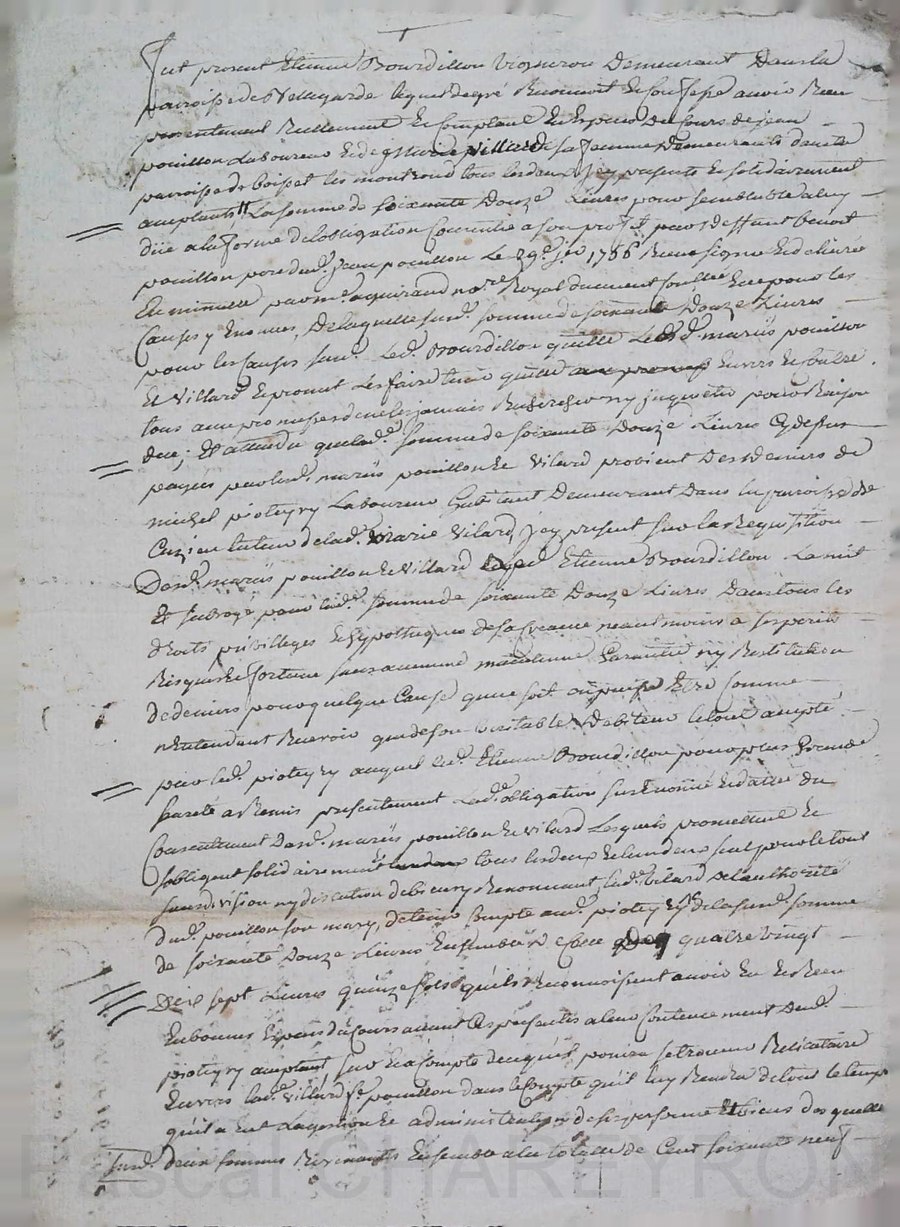 fut present Etienne Bourdillon vigneron Demeurant Dans la
parroisse de Bellegarde lequel de gré Reconnoit et Confesse avoir Receu
presentement Reellement et Comptant En Especes du Cours de jean
pouillon Laboureur et de Marie Villard sa femme Demeurants dans la
parroisse de boisset les montrond tous les deux icy presents et solidairement
acceptants La somme de soixante Douze Livres pour semblable a luy
düe a la forme de l'obligation Consentie a son profit par deffunt benoit
pouillon pere dud. jean pouillon Le 29e 1756 Receue signée et delivrée
En minutte par me. aguiraud nore. Royal düement scellée Et ce pour les
Causes y Enoncés, De laquelle sud. somme de soixante Douze Livres
pour les Causes sud. Led. Bourdillon quitte Lesd. mariés pouillon
Et Villard Et promet Les faire tenir quitte Envers Et Contre
tous avec promesse de ne leur jamais Rechercher ny inquieter pour Raison
de ce; Et attendu que lad. somme de soixante Douze Livres Cy dessus
payée par lesd. mariés pouillon Et Vilard provient Des Deniers de
michel pioteyry Laboureur habitant Demeurant Dans la parroisse de
Cuzieu tuteur de lad. Marie Vilard, icy present sur la Requisition
Desd. mariés pouillon Et Villard led. Etienne Bourdillon La mit
Et subrogé pour lad. somme de soixante Douze Livres Dans tous les
droits privilleges Et hypotheques de sa Creance neantmoins a ses perils
Risques Et fortune sans aucune maintenue Garantie ny Restitution
De deniers pour quelque Cause que ce soit ou puisse Etre Comme
n'Entendant Recevoir que de son veritable Debiteur le tout accepté
par led. pioteyry auquel led. Etienne Bourdillon pour plus Grande
sureté a Remis presentement Lad. obligation sus Enoncée Et dattée du
Consentement Desd. mariés pouillon Et Vilard Lesquels promettent Et
s'obligent solidairement tous les deux Et l'un d'eux seul pour le tout
sans division ny discution de biens y Renonceant, lad. Vilard de l'authorité
dud. pouillon son mary, de tenir Compte aud. pioteyry de la sud. somme
de soixante Douze Livres Ensemble De Celle quatre vingt
Dix sept Livres quinze sols qu'ils Reconnoissent avoir Eu Et Receu
En bonnes Especes du Cours avant Ces presentes a leur Contentement Dud.
pioteyry acceptant sur Et a Compte de ce qu'il pouroit se trouver Relicataire
Envers lad. Villard fe. pouillon dans le Compte qu'il luy Rendra de tout le temps
qu'il a Eut La gestion Et administration de ses personne Et biens des quelle
sud. deux sommes Revenants Ensemble a la totalle de Cent soixante neuf
Pascal CHAREYRON